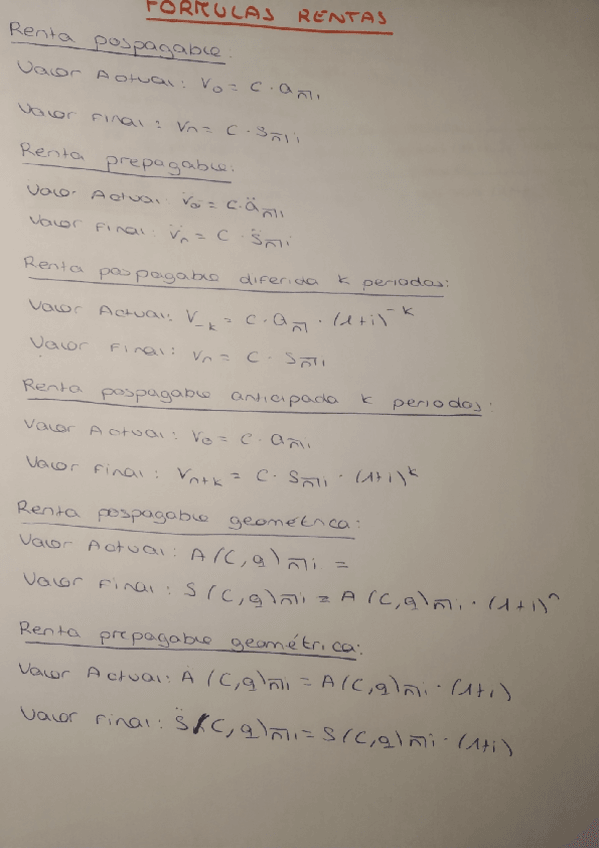 FORMULAS RENTAS
Renta pospagable:
Valor Actual: V₀ = C · a n̅| i
Valor Final: Vn = C · S n̅| i
Renta prepagable:
Valor Actual: V̈₀ = C · ä n̅| i
Valor Final: V̈n = C · S̈ n̅| i
Renta pospagable diferida k periodos:
Valor Actual: V₋k = C · a n̅| · (1+i)⁻ᵏ
Valor Final: Vn = C · S n̅| i
Renta pospagable anticipada k periodos:
Valor Actual: V₀ = C · a n̅| i
Valor Final: Vn+k = C · S n̅| i · (1+i)ᵏ
Renta pospagable geométrica:
Valor Actual: A (C,q) n̅| i =
Valor Final: S (C,q) n̅| i = A (C,q) n̅| i · (1+i)ⁿ
Renta prepagable geométrica:
Valor Actual: Ä (C,q) n̅| i = A (C,q) n̅| i · (1+i)
Valor Final: S̈ (C,q) n̅| i = S (C,q) n̅| i · (1+i)